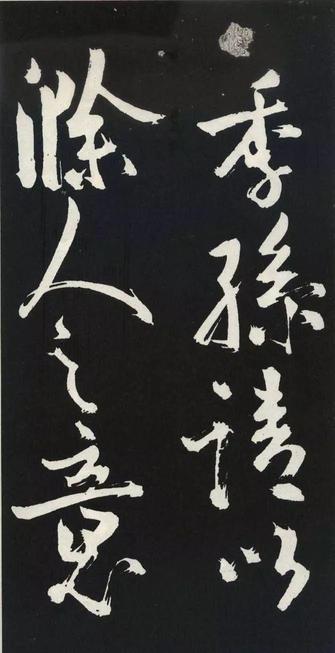 季孫請以
滁人之意